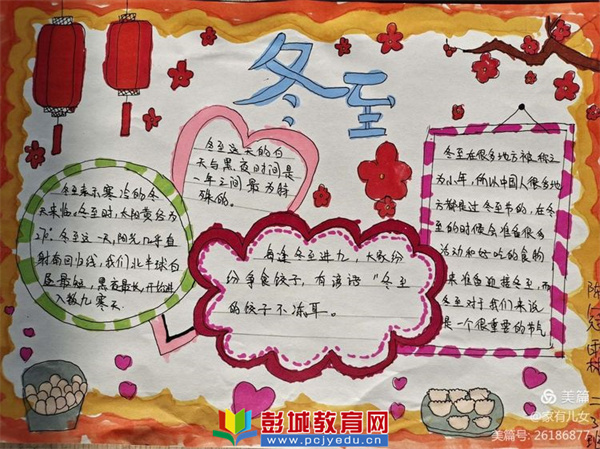 冬至
冬至这天的白
天与黑夜时间是
一年之间最为特
殊的。
冬至表示寒冷的冬
天来临。冬至时,太阳黄经为
270°。冬至这一天,阳光几乎直
射南回归线,我们北半球白
昼最短,黑夜最长,开始进
入数九寒天。
每逢冬至进九,大家纷
纷争食饺子,有谚语“冬至
的饺子不冻耳。
冬至在很多地方被视之
为小年,所以中国人很多地
方都是过冬至节的,在冬
至的时候会准备很多
活动和好吃的食物
来准备迎接冬至,而
冬至对于我们来说
是一个很重要的节气
彭城教育网
www.pcjyedu.cn
美篇
@家有儿女
美篇号: 26186877